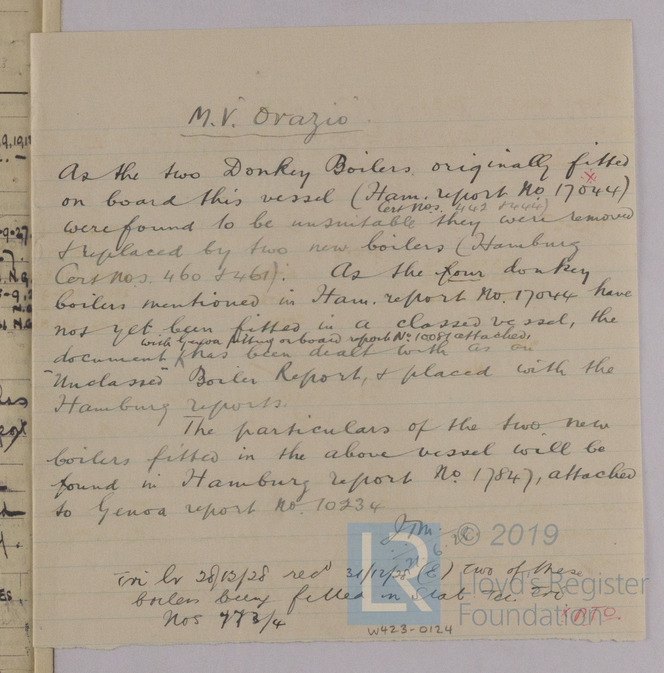 M.V. Orazio
As the two Donkey Boilers originally fitted
on board this vessel (Ham. report No. 17044)
Cert Nos. 442 & 444)
were found to be unsuitable they were removed
& replaced by two new boilers (Hamburg
Cert Nos. 460 & 461). As the four donkey
boilers mentioned in Ham. report No. 17044 have
not yet been fitted in a classed vessel, the
with Genoa fitting on board report No. 10081 attached,
document has been dealt with as an
"Unclassed" Boiler Report, & placed with the
Hamburg reports.
The particulars of the two new
boilers fitted in the above vessel will be
found in Hamburg report No. 17847, attached
to Genoa report No. 10234
6.28
© 2019
28/12/28 recd 31/12/28 (E) two of these
boilers being fitted in
Nos 773/4
LR
Lloyd's Register
Foundation
P.T.O.
W423-0124